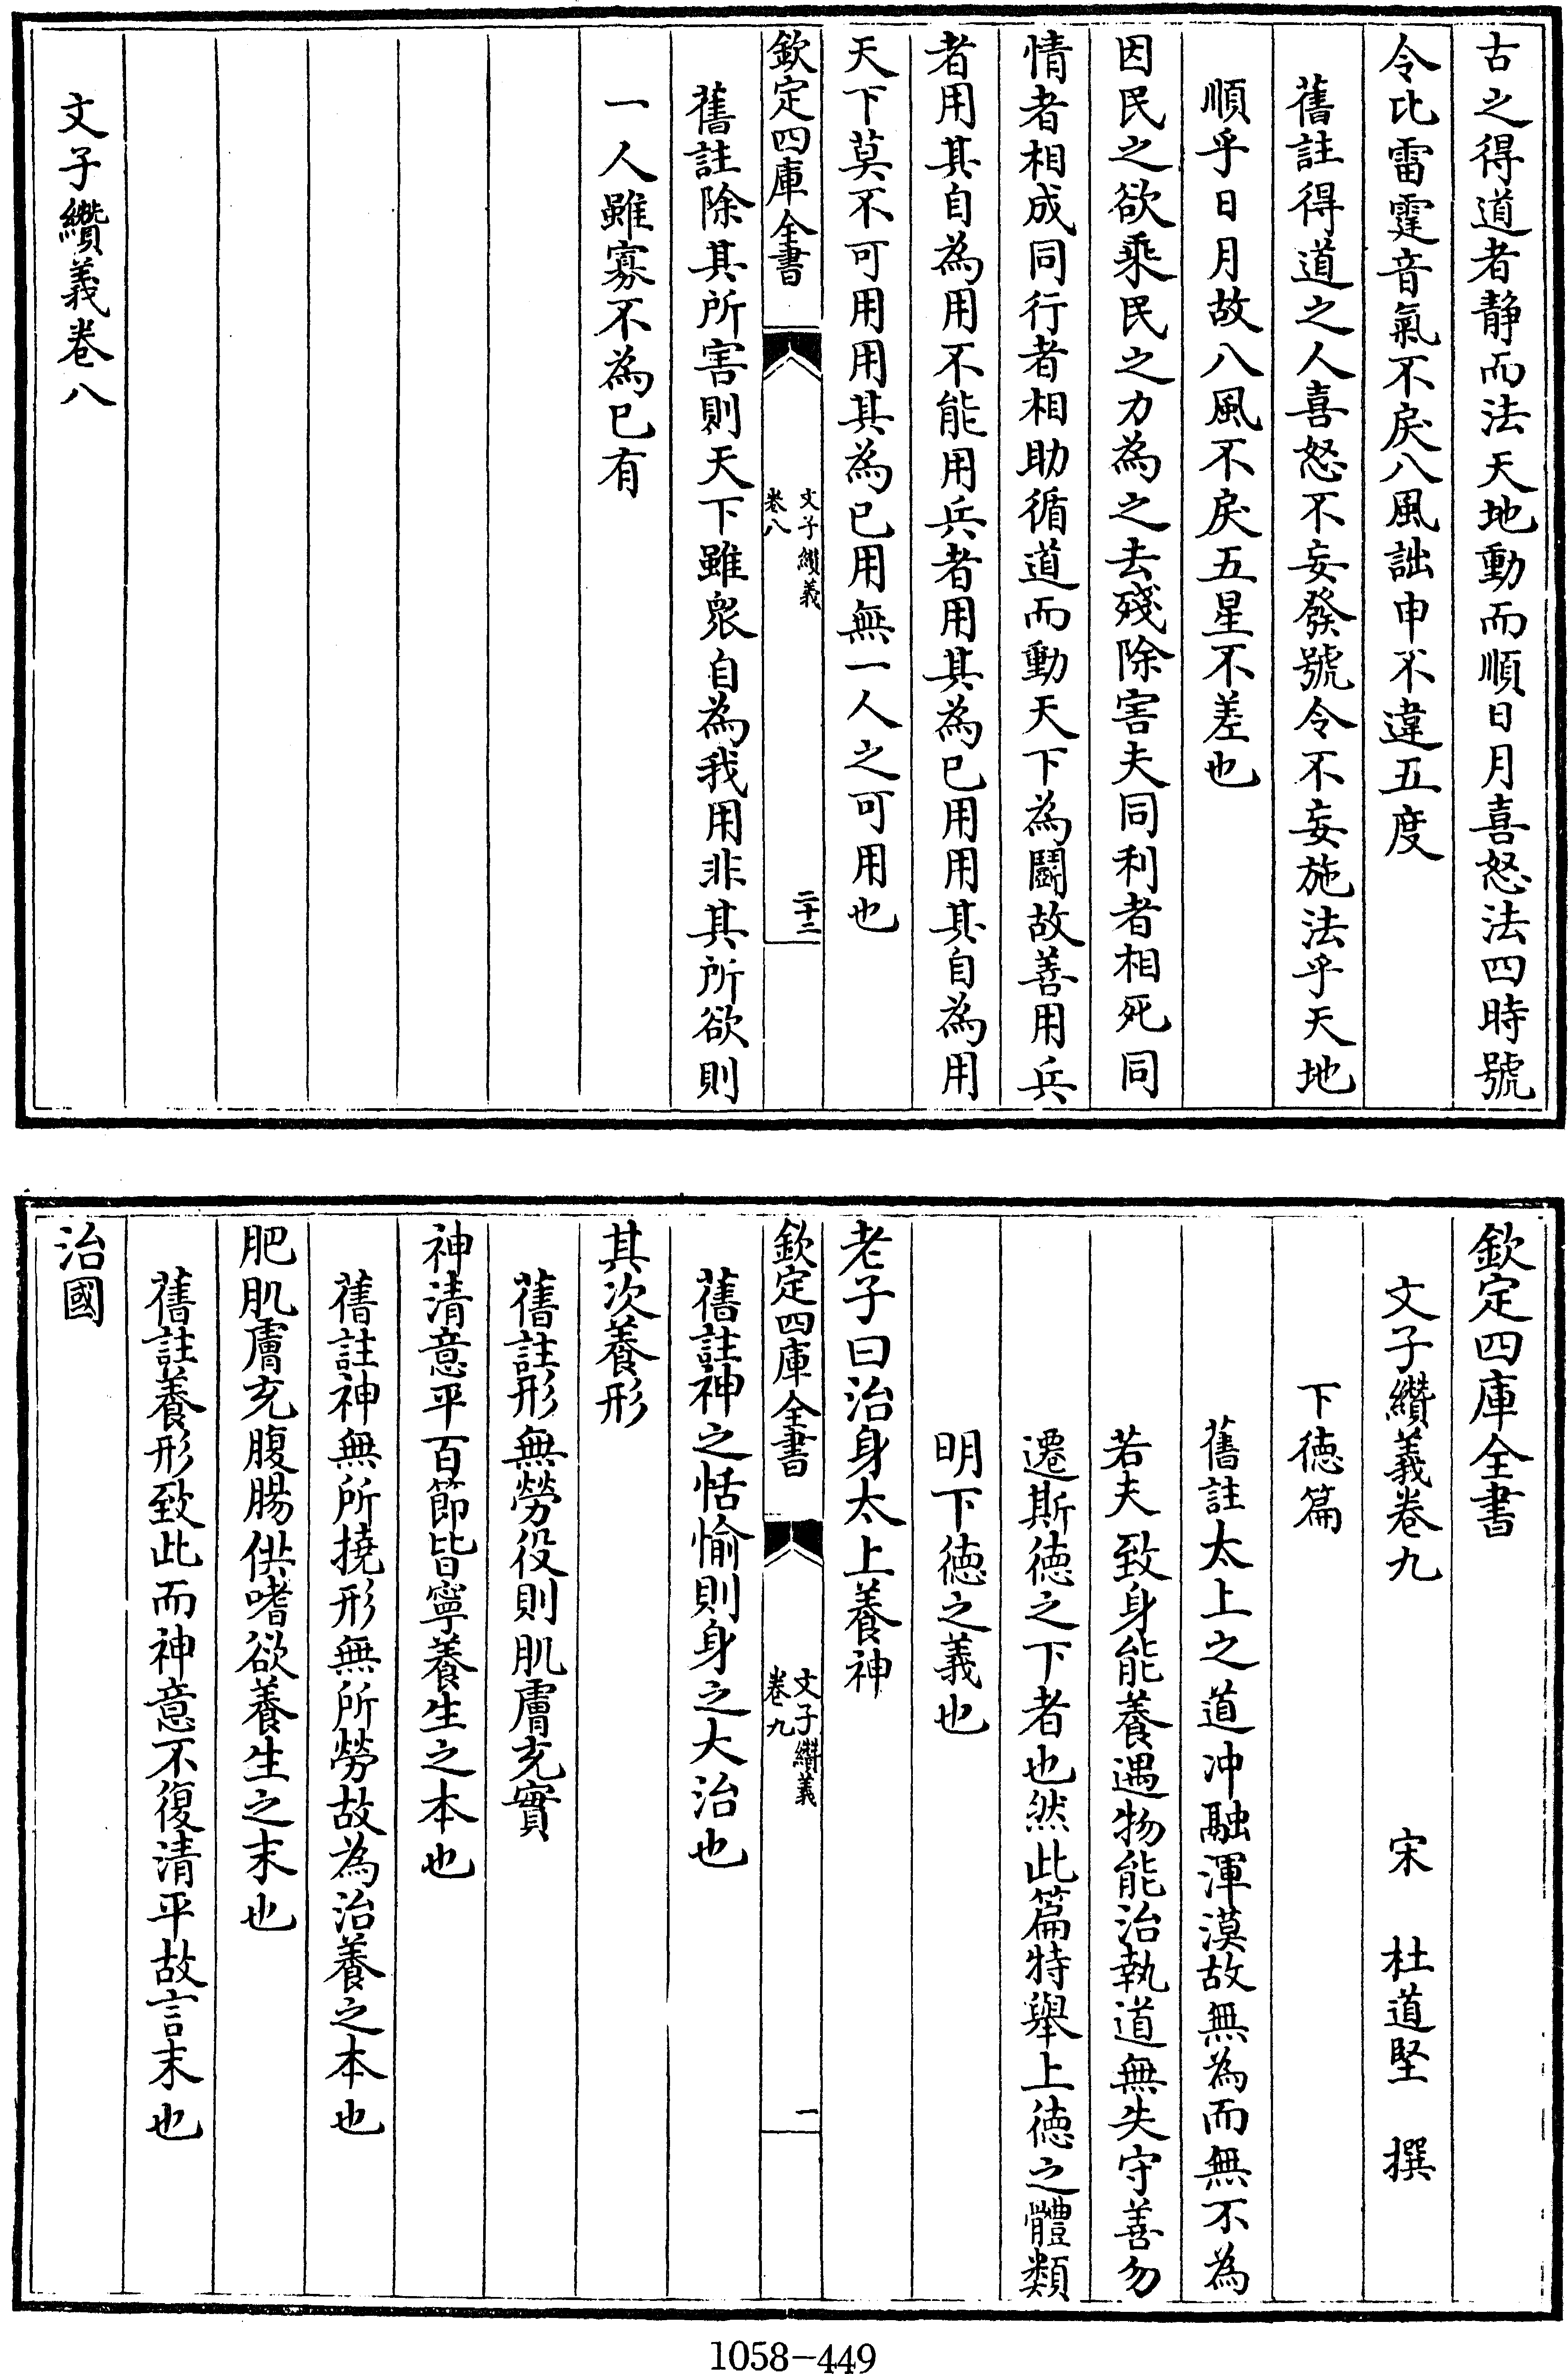 古之得道者静而法天地動而順日月喜怒法四時號
令比雷霆音氣不戾八風詘申不違五度
舊註得道之人喜怒不妄發號令不妄施法乎天地
順乎日月故八風不戾五星不差也
因民之欲乘民之力為之去殘除害夫同利者相死同
情者相成同行者相助循道而動天下為鬭故善用兵
者用其自為用不能用兵者用其為已用用其自為用
天下莫不可用用其為已用無一人之可用也
欽定四庫全書
文子纉義
卷八
二十二
舊註除其所害則天下雖衆自為我用非其所欲則
一人雖寡不為已有
文子纉義卷八
欽定四庫全書
文子纉義卷九
宋 杜道堅 撰
下德篇
舊註太上之道冲融渾漠故無為而無不為
若夫致身能養遇物能治執道無失守善勿
遷斯德之下者也然此篇特舉上德之體類
明下德之義也
老子曰治身太上養神
欽定四庫全書
文子纉義
卷九
一
舊註神之恬愉則身之大治也
其次養形
舊註形無勞役則肌膚充實
神清意平百節皆寧養生之本也
舊註神無所撓形無所勞故為治養之本也
肥肌膚充腹腸供嗜欲養生之末也
舊註養形致此而神意不復清平故言末也
治國
1058-449